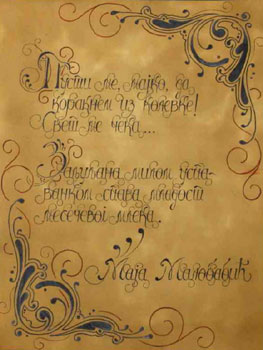 Пусти ме, мајко, да
коракнем из колевке!
Свет ме чека...
Заливана миком успа-
ванком спава младост
месечевог млека.
Маја Милобабић